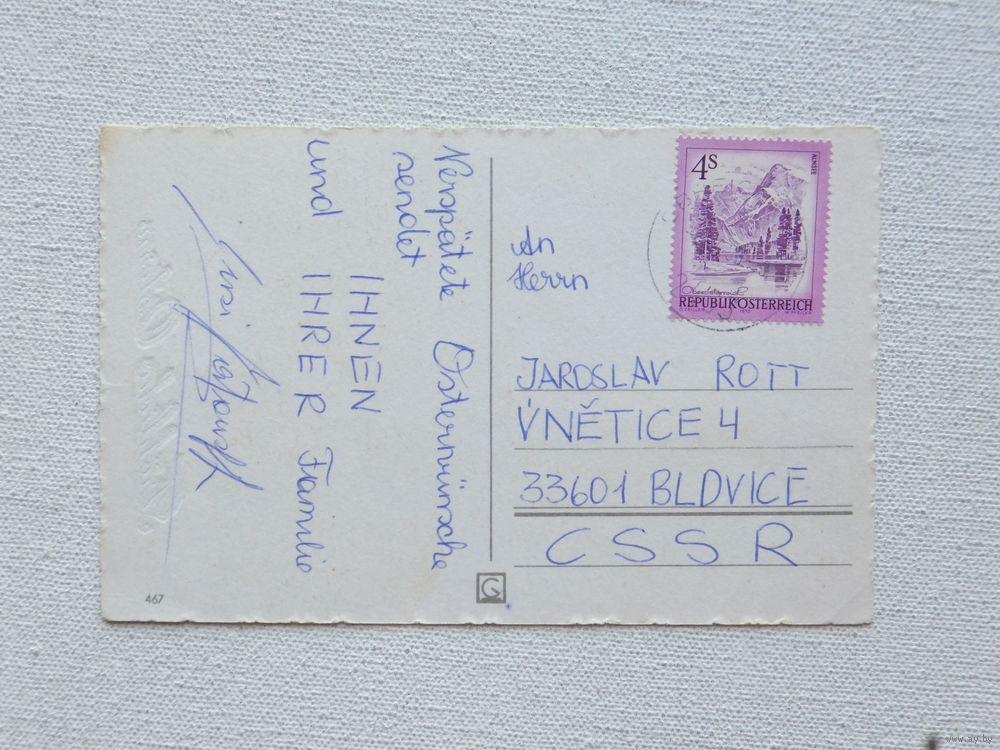 Verspätete Osterwünsche
sendet
IHNEN
und IHRER Familie
An
Herrn
JAROSLAV ROTT
VNĚTICE 4
33601 BLDVICE
CSSR
4S
ALMSEE
Oberösterreich
REPUBLIK ÖSTERREICH
467
G
www.ay.by